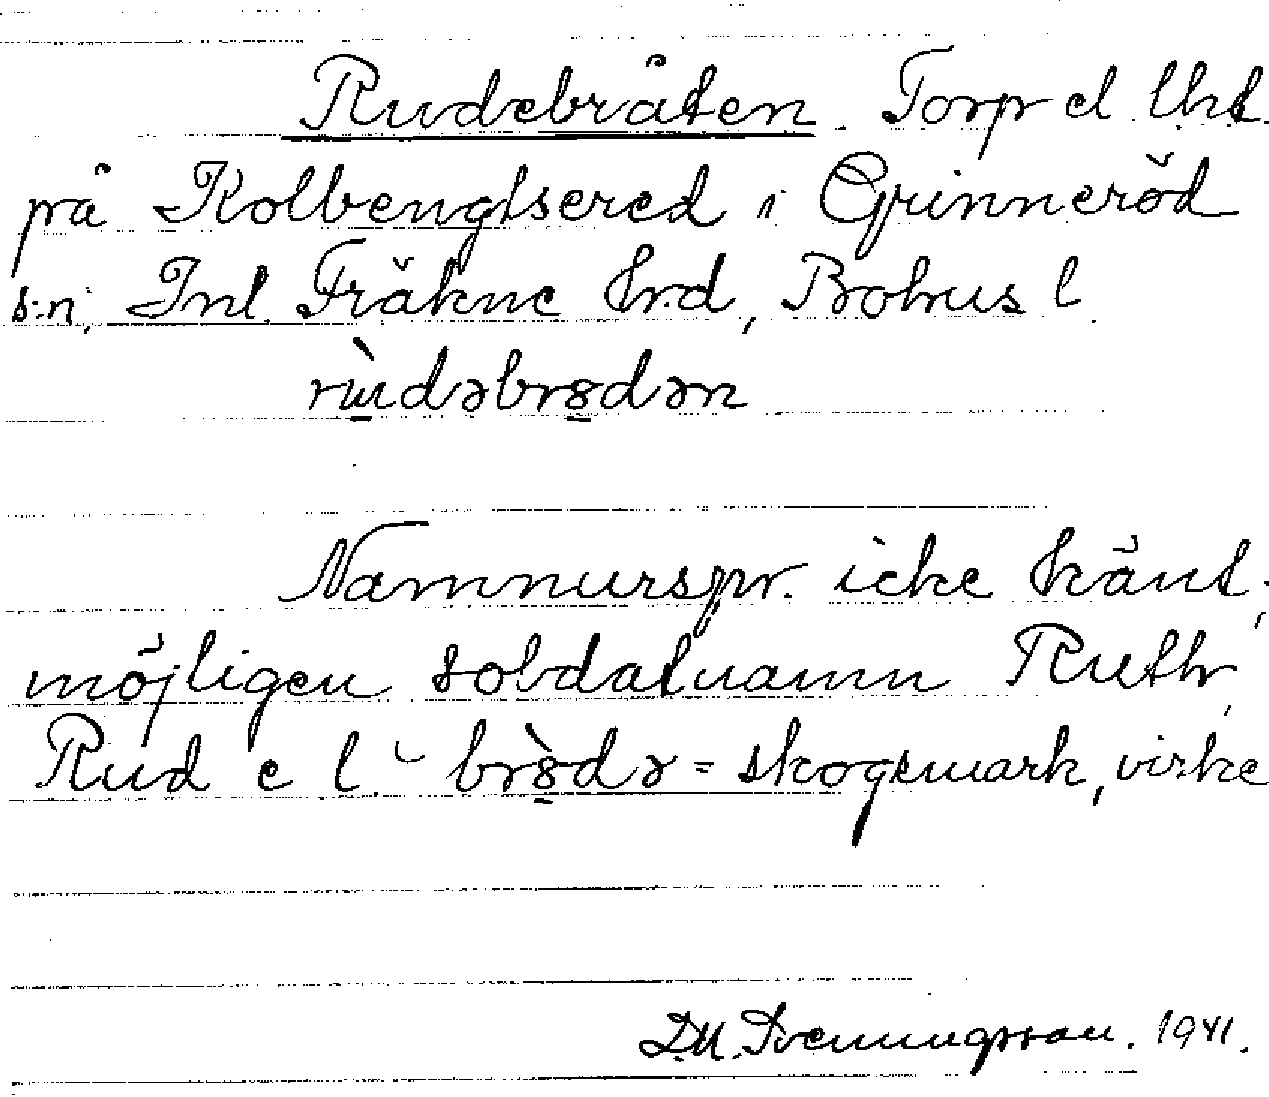 Rudebråten. Torp el. lht.
på Kolbengtsered i Grinneröd
s:n, Inl. Fräkne hrd, Bohus l.
rɯ̀dəbrødən
Namnurspr. icke känt,
möjligen soldatnamn Ruth,
Rud e l. brø̀də = skogsmark, virke
D.M. Svenningsson. 1941.